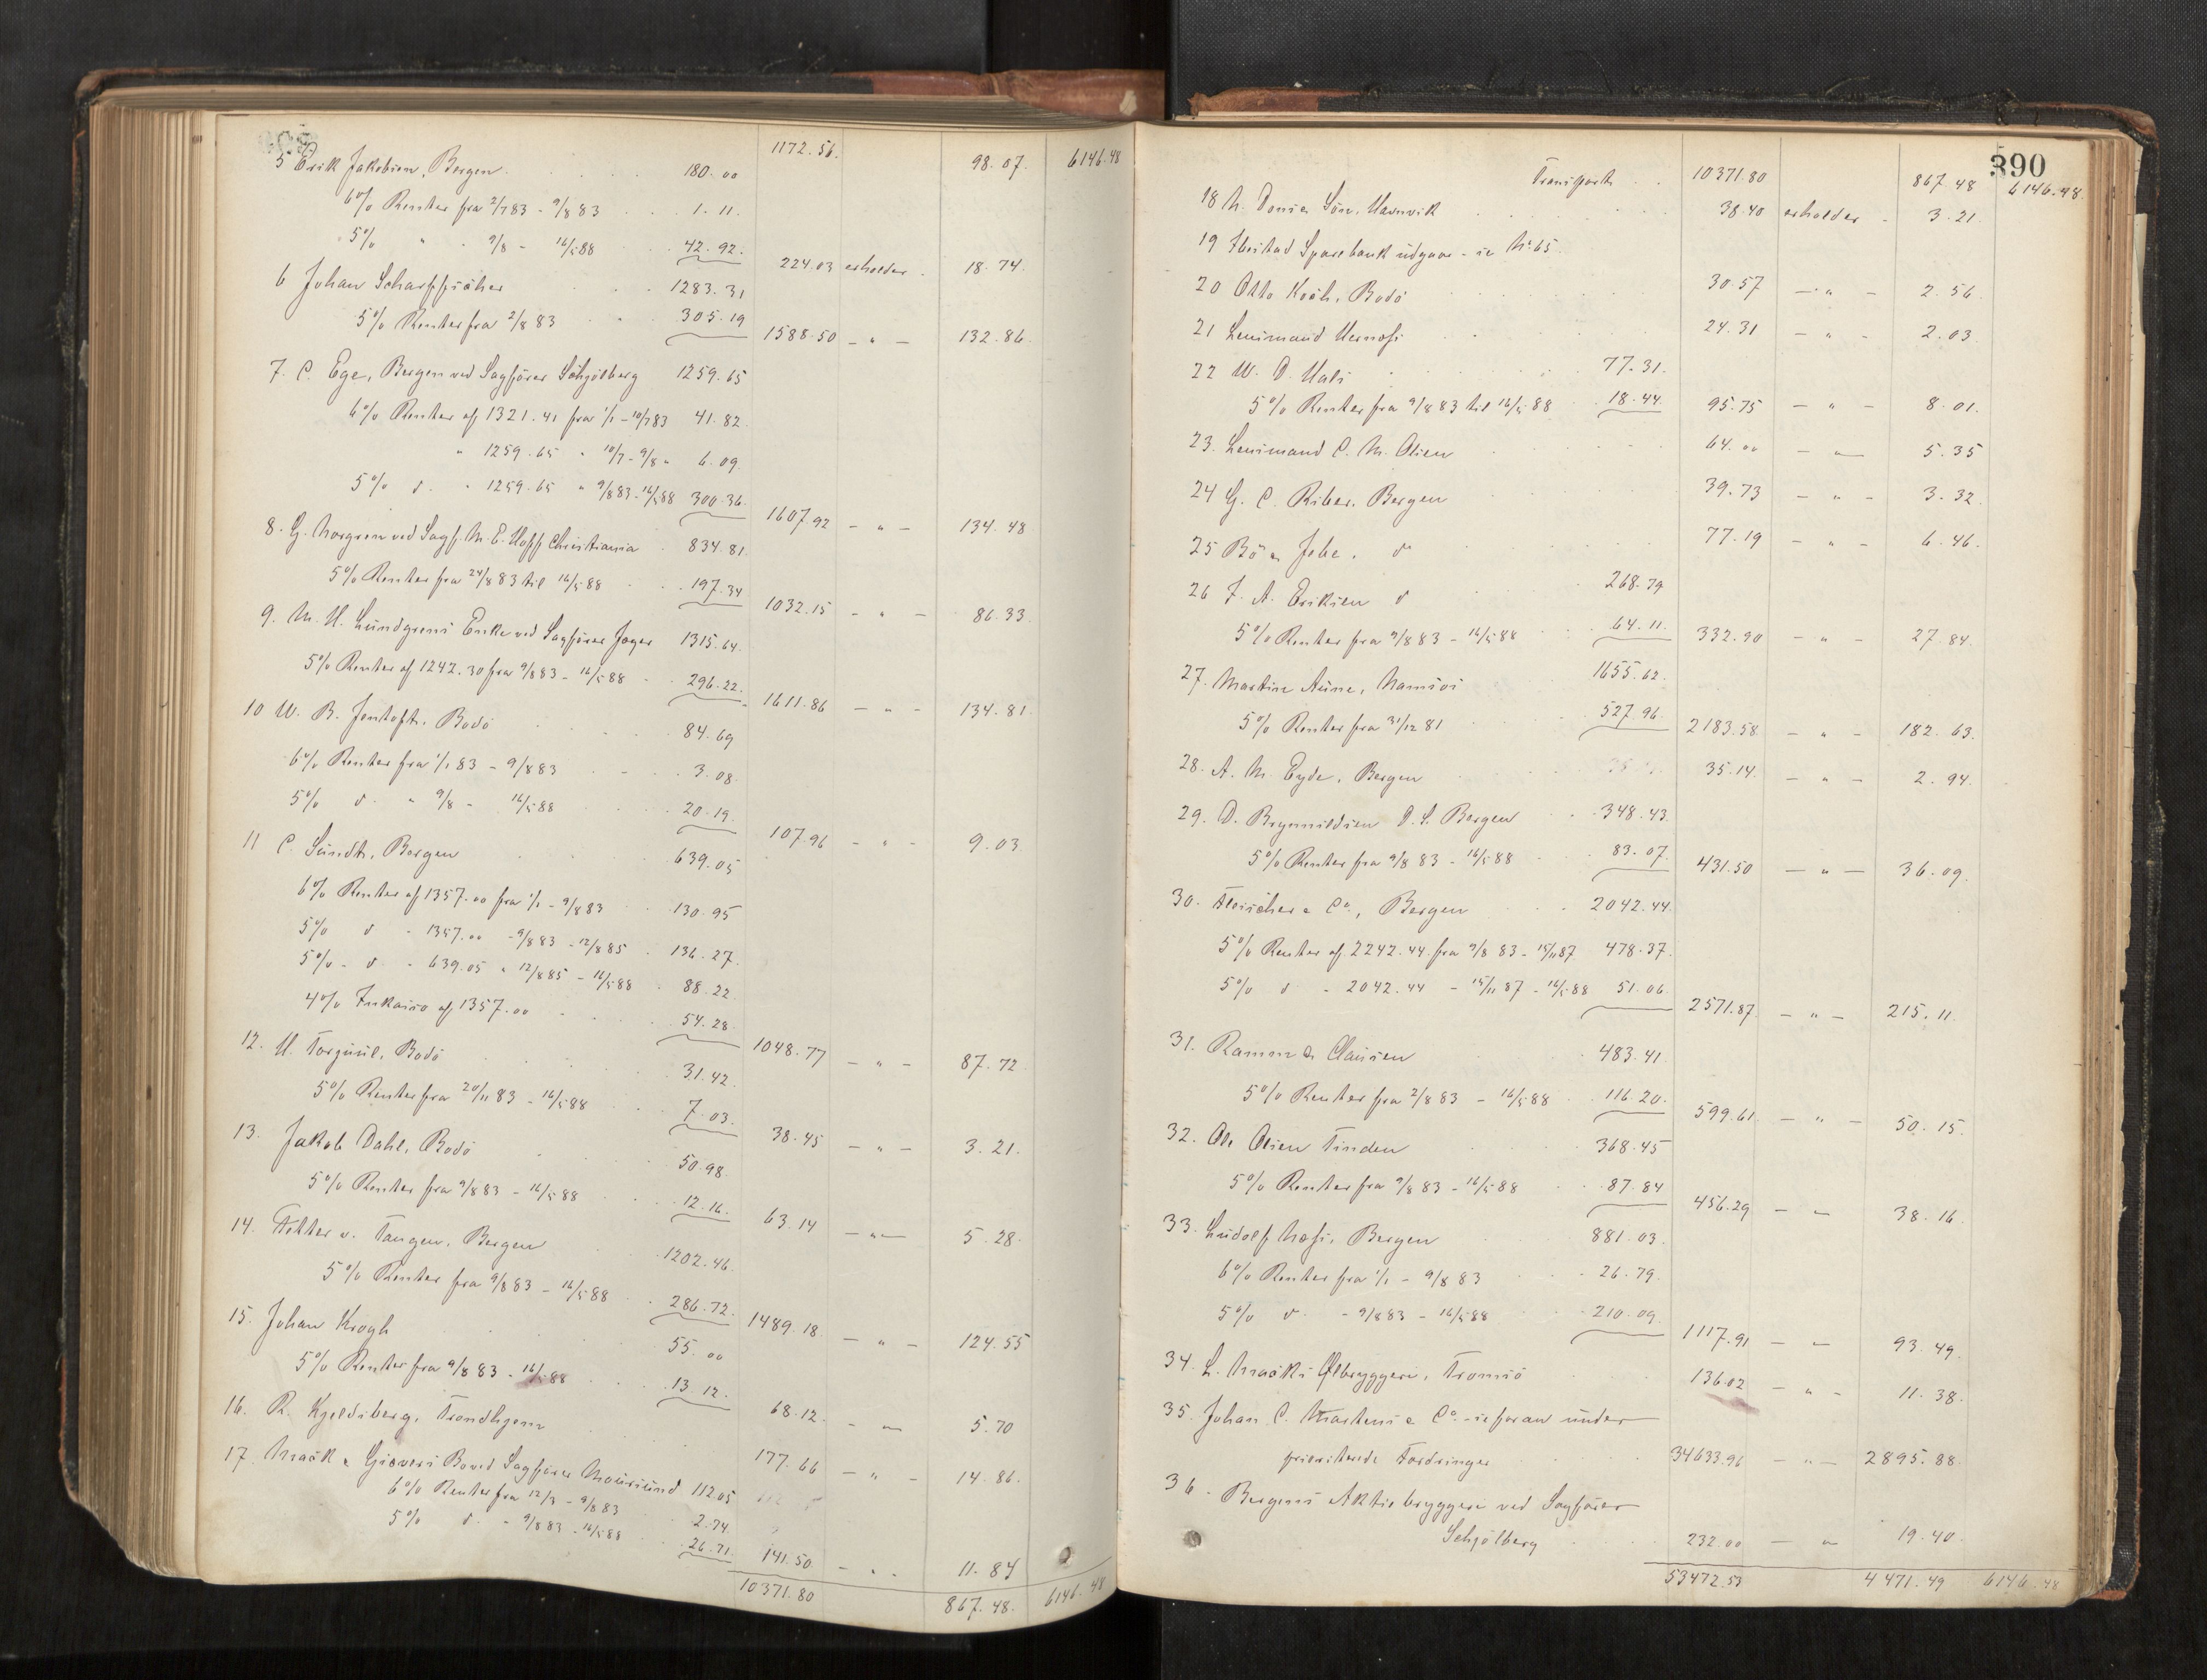 1172.56. 98.07. 6146.48
5 Erik Jakobsen, Bergen 180.00
6% Renter fra 2/7 83 - 9/8 83 1.11.
5% " 9/8 - 16/5 88 42.92. 224.03 erholder 18.74.
6 Johan Scharffscher 1283.31
5% Renter fra 2/8 83 305.19 1588.50 - " - 132.86.
7. C. Ege, Bergen ved Sagfører Schjölberg 1259.65
6% Renter af 1321.41 fra 1/1 - 10/7 83 41.82
" 1259.65 " 10/7 - 9/8 " 6.09
5% d. " 1259.65 " 9/8 83 - 16/5 88 300.36. 1607.92 - " - 134.48
8. G. Norgren ved Sagf. M. E. Hoff Christiania 834.81
5% Renter fra 24/8 83 til 16/5 88 197.34 1032.15 - " - 86.33
9. M. H. Lundgrens Enke ved Sagfører Jager 1315.64.
5% Renter af 1242.30 fra 9/8 83 - 16/5 88 296.22. 1611.86 - " - 134.81.
10 W. B. Jentoft. Bodö 84.69
6% Renter fra 1/1 83 - 9/8 83 3.08
5% d. " 9/8 - 16/5 88 20.19. 107.96 - " - 9.03
11 C. Sundt, Bergen 639.05
6% Renter af 1357.00 fra 1/1 - 9/8 83 130.95
5% d - 1357.00 - 9/8 83 - 12/8 85 136.27.
5% - d. - 639.05 " 12/8 85 - 16/5 88 88.22
4% Inkasso af 1357.00 54.28. 1048.77 - " - 87.72
12. H. Torjuul, Bodö 31.42.
5% Renter fra 20/11 83 - 16/5 88 7.03. 38.45 - " - 3.21.
13. Jakob Dahl, Bodö 50.98.
5% Renter fra 9/8 83 - 16/5 88 12.16. 63.14 - " - 5.28.
14. Fetter v. Tangen, Bergen 1202.46.
5% Renter fra 9/8 83 - 16/5 88 286.72. 1489.18. - " - 124.55
15. Johan Krogh 55.00
5% Renter fra 9/8 83 - 16/5 88 13.12. 68.12. - " - 5.70
16. R. Kjeldsberg, Trondhjem 177.66 - " - 14.86.
17. Mack & Gjævers Bo ved Sagfører Mousund 112.05
6% Renter fra 12/3 - 9/8 83 2.74.
5% d. - 9/8 83 - 16/5 88 26.71. 141.50 - " - 11.84
10371.80 867.48. 6146.48
390
Transport 10371.80 867.48 6146.48
18 N. Dons's Sön, Havnvik 38.40 erholder - 3.21.
19 Ibestad Sparebank udgaar - se No 65.
20 Otto Koch, Bodö 30.57 - " - 2.56.
21 Lensmand Hernæs 24.31 - " - 2.03.
22 W. D. Hals 77.31.
5% Renter fra 9/8 83 til 16/5 88 18.44. 95.75 - " - 8.01.
23. Lensmand C. M. Olsen 64.00 - " - 5.35
24 G. C. Riber, Bergen 39.73 - " - 3.32.
25 Bö & Jebe. do 77.19 - " - 6.46.
26 J. A. Eriksen d 268.79
5% Renter fra 9/8 83 - 16/5 88 64.11. 332.90 - " - 27.84.
27. Martin Aune, Namsos 1655.62.
5% Renter fra 31/12 81 527.96. 2183.58. - " - 182.63.
28. A. M. Eyde, Bergen 35.14. - " - 2.94.
29. D. Brynnildsen D. S. Bergen 348.43.
5% Renter fra 9/8 83 - 16/5 88 83.07. 431.50 - " - 36.09.
30. Fleischer & Co., Bergen 2042.44.
5% Renter af 2242.44 fra 9/8 83 - 15/11 87 478.37.
5% d - 2042.44 - 15/11 87 - 16/5 88 51.06. 2571.87. - " - 215.11.
31. Ramm & Clausen 483.41.
5% Renter fra 2/8 83 - 16/5 88 116.20. 599.61. - " - 50.15.
32. Ole Olsen Tinden 368.45
5% Renter fra 9/8 83 - 16/5 88 87.84 456.29 - " - 38.16.
33. Ludolf Næss, Bergen 881.03.
6% Renter fra 1/1 - 9/8 83 26.79.
5% d - 9/8 83 - 16/5 88 210.09. 1117.91 - " - 93.49.
34. L. Macks Ølbryggeri, Tromsö 136.02 - " - 11.38.
35. Johan C. Martens & Co. - se foran under
prioriterede Fordringer 34633.96 - " - 2895.88.
36. Bergens Aktiebryggeri ved Sagfører
Schjölberg 232.00 - " - 19.40.
53472.53 4471.49 6146.48